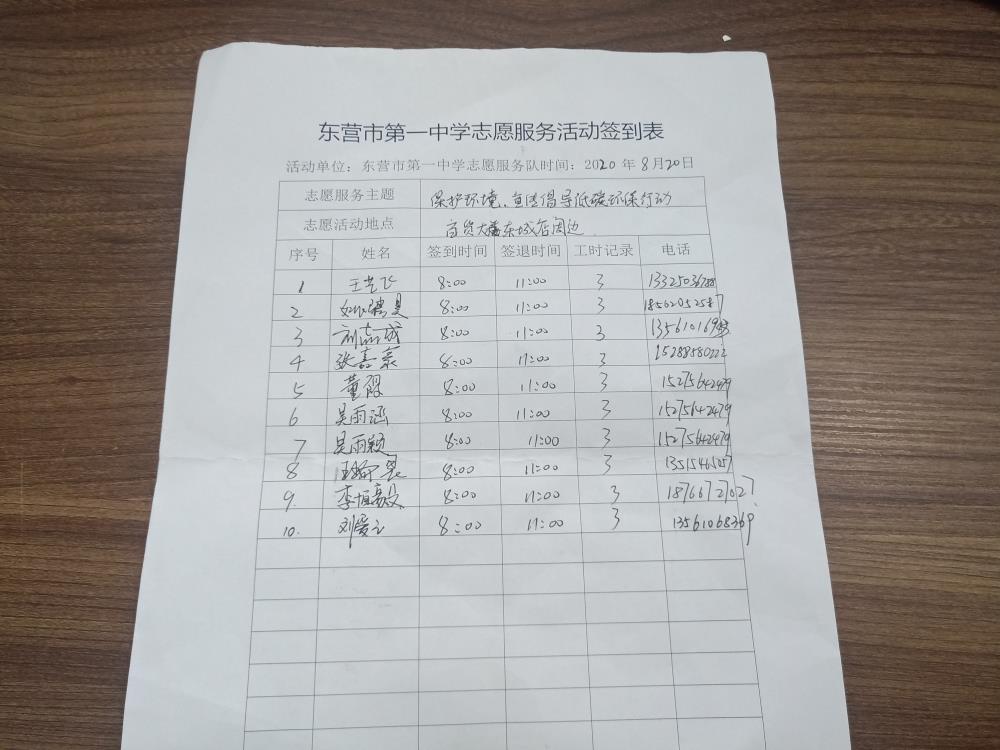 东营市第一中学志愿服务活动签到表
活动单位：东营市第一中学志愿服务队时间：2020年8月20日
志愿服务主题 保护环境、宣传倡导低碳环保行动
志愿活动地点 商贸大楼东城店周边
序号 姓名 签到时间 签退时间 工时记录 电话
1 8:00 11:00 3
2 8:00 11:00 3 18562052587
3 刘志成 8:00 11:00 3
4 张嘉 8:00 11:00 3 15288580222
5 董霞 8:00 11:00 3 15275642479
6 吴雨涵 8:00 11:00 3 15275642479
7 吴雨颖 8:00 11:00 3 15275642479
8 8:00 11:00 3
9. 李恒毅 8:00 11:00 3 18766727027
10. 刘爱 8:00 11:00 3 13561068369